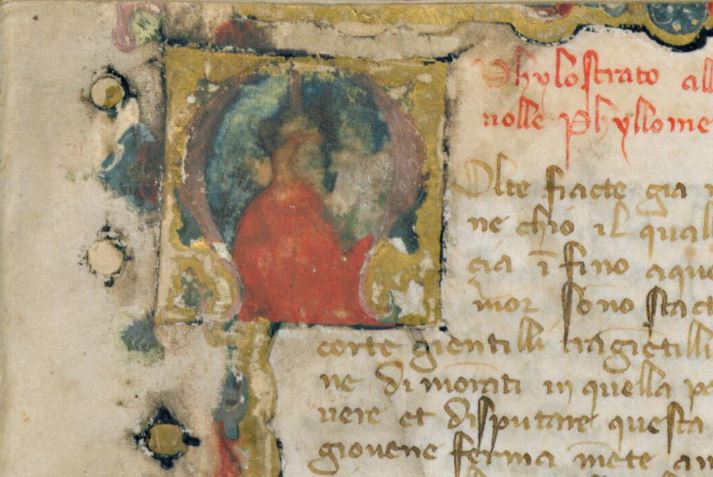 Phylostrato all
nolle Phyllome
Olte fiacte gia
ne chio il qual
cia ī fino aque
mor sono stact
corte gientilli ragiētilli
ne dimorati in quella pa
uere et disputare questa
giouene ferma mēte am